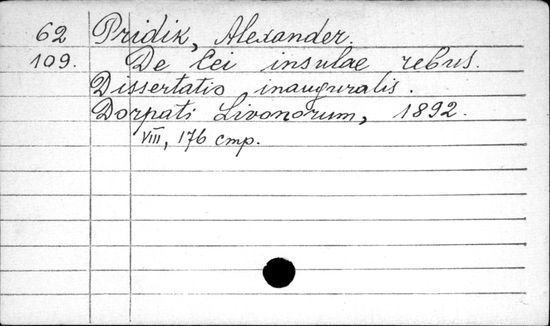 62 Pridik, Alexander.
109. De Cei insulae rebus.
Dissertatio inauguralis.
Dorpati Livonorum, 1892.
VIII, 176 стр.